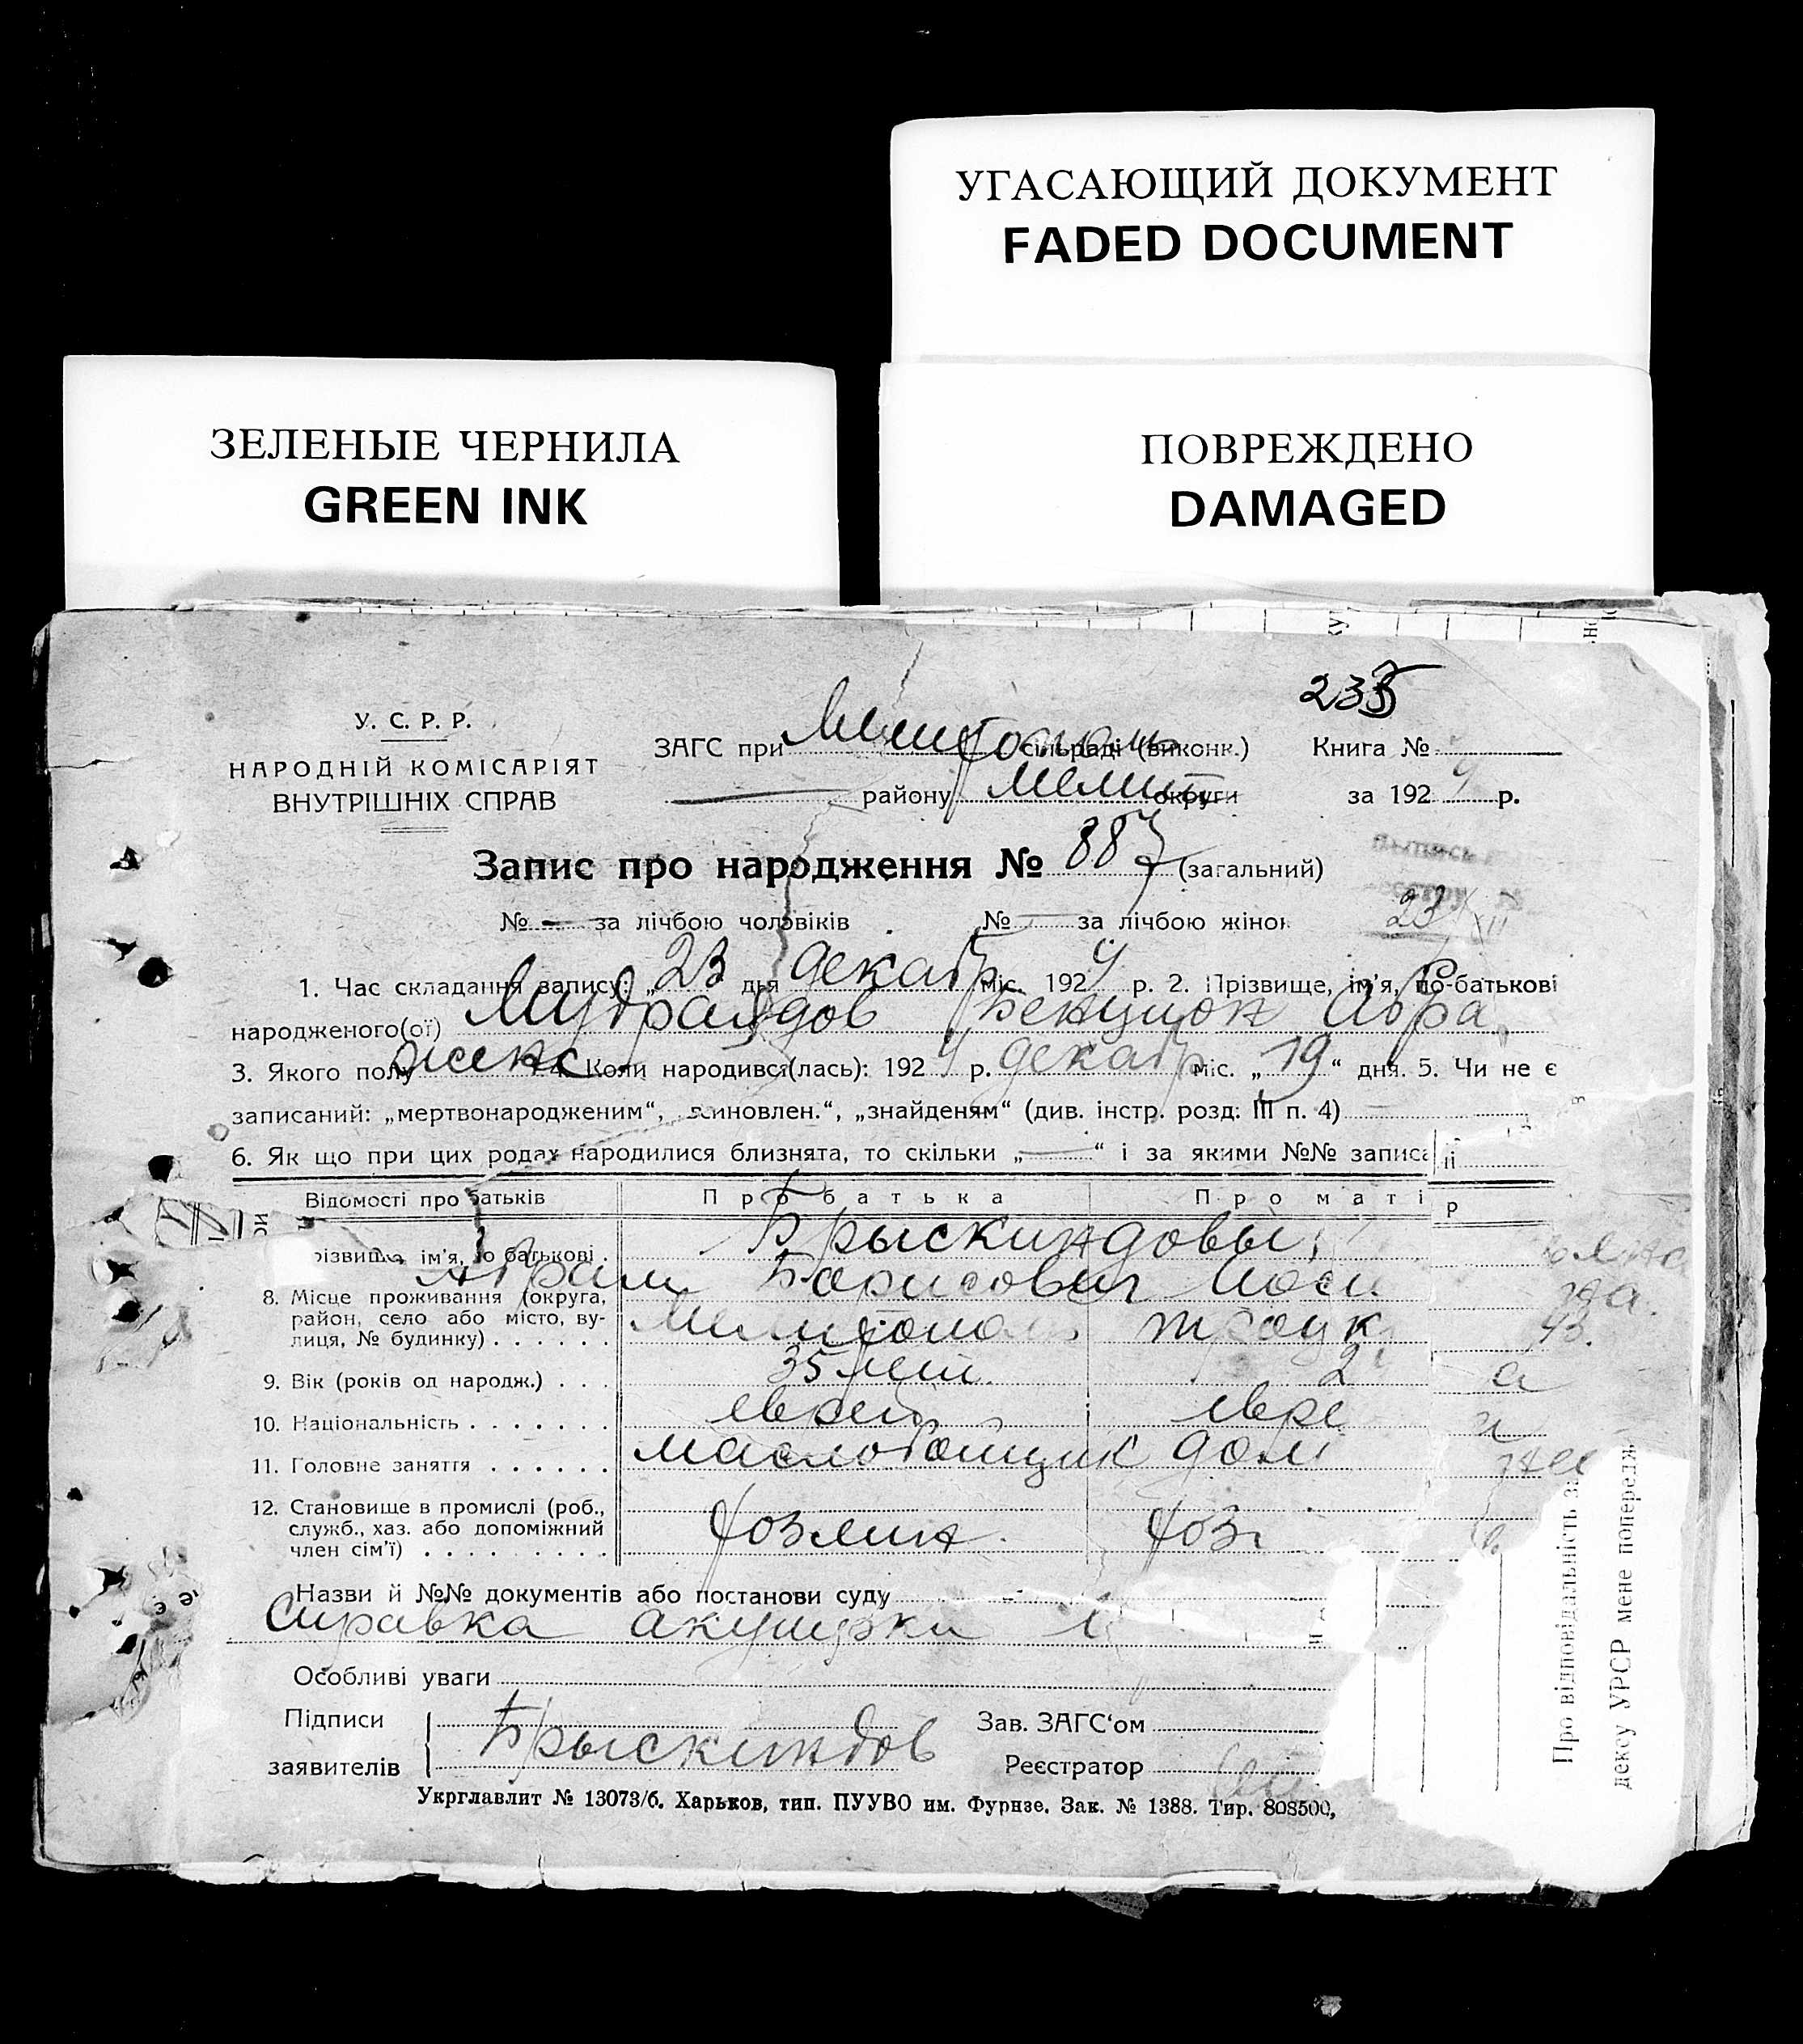 УГАСАЮЩИЙ ДОКУМЕНТ
FADED DOCUMENT
ЗЕЛЕНЫЕ ЧЕРНИЛА
GREEN INK
ПОВРЕЖДЕНО
DAMAGED
У. С. Р. Р.
НАРОДНІЙ КОМІСАРІЯТ
ВНУТРІШНІХ СПРАВ
ЗАГС при Мелитополь сільраді (виконк.)
району Мелит округи
Книга №
за 192 р.
Запис про народження № 887 (загальний)
№ — за лічбою чоловіків № — за лічбою жінок
23/XII
1. Час складання запису: „23 дня декабр міс. 1924 р. 2. Прізвище, ім'я, по-батькові
народженого(ої)
3. Якого полу 4. Коли народився(лась): 1924 р. декабр міс. „19“ дня. 5. Чи не є
записаний: „мертвонародженим“, „ „знайденям“ (див. інстр. розд: III п. 4)
6. Як що при цих родах народилися близнята, то скільки „—“ і за якими №№ запис
Відомості про батьків Про батька Про маті
ім'я, по батькові Брыскиндовы
Абрам Борисович
8. Місце проживання (округа,
район, село або місто, ву-
лиця, № будинку) Мелитополь
9. Вік (років од народж.) 35 лет
10. Національність еврей евре
11. Головне заняття маслобойщик дом
12. Становище в промислі (роб.,
служб., хаз. або допоміжний
член сім'ї) хозяин хоз
Назви й №№ документів або постанови суду
Справка акушерки
Особливі уваги
Підписи
заявителів
Брыскиндов
Зав. ЗАГС'ом
Реєстратор
Укрглавлит № 13073/б. Харьков, тип. ПУУВО им. Фрунзе. Зак. № 1388. Тир. 808500,
Про відповідальність за
дексу УРСР мене попередж